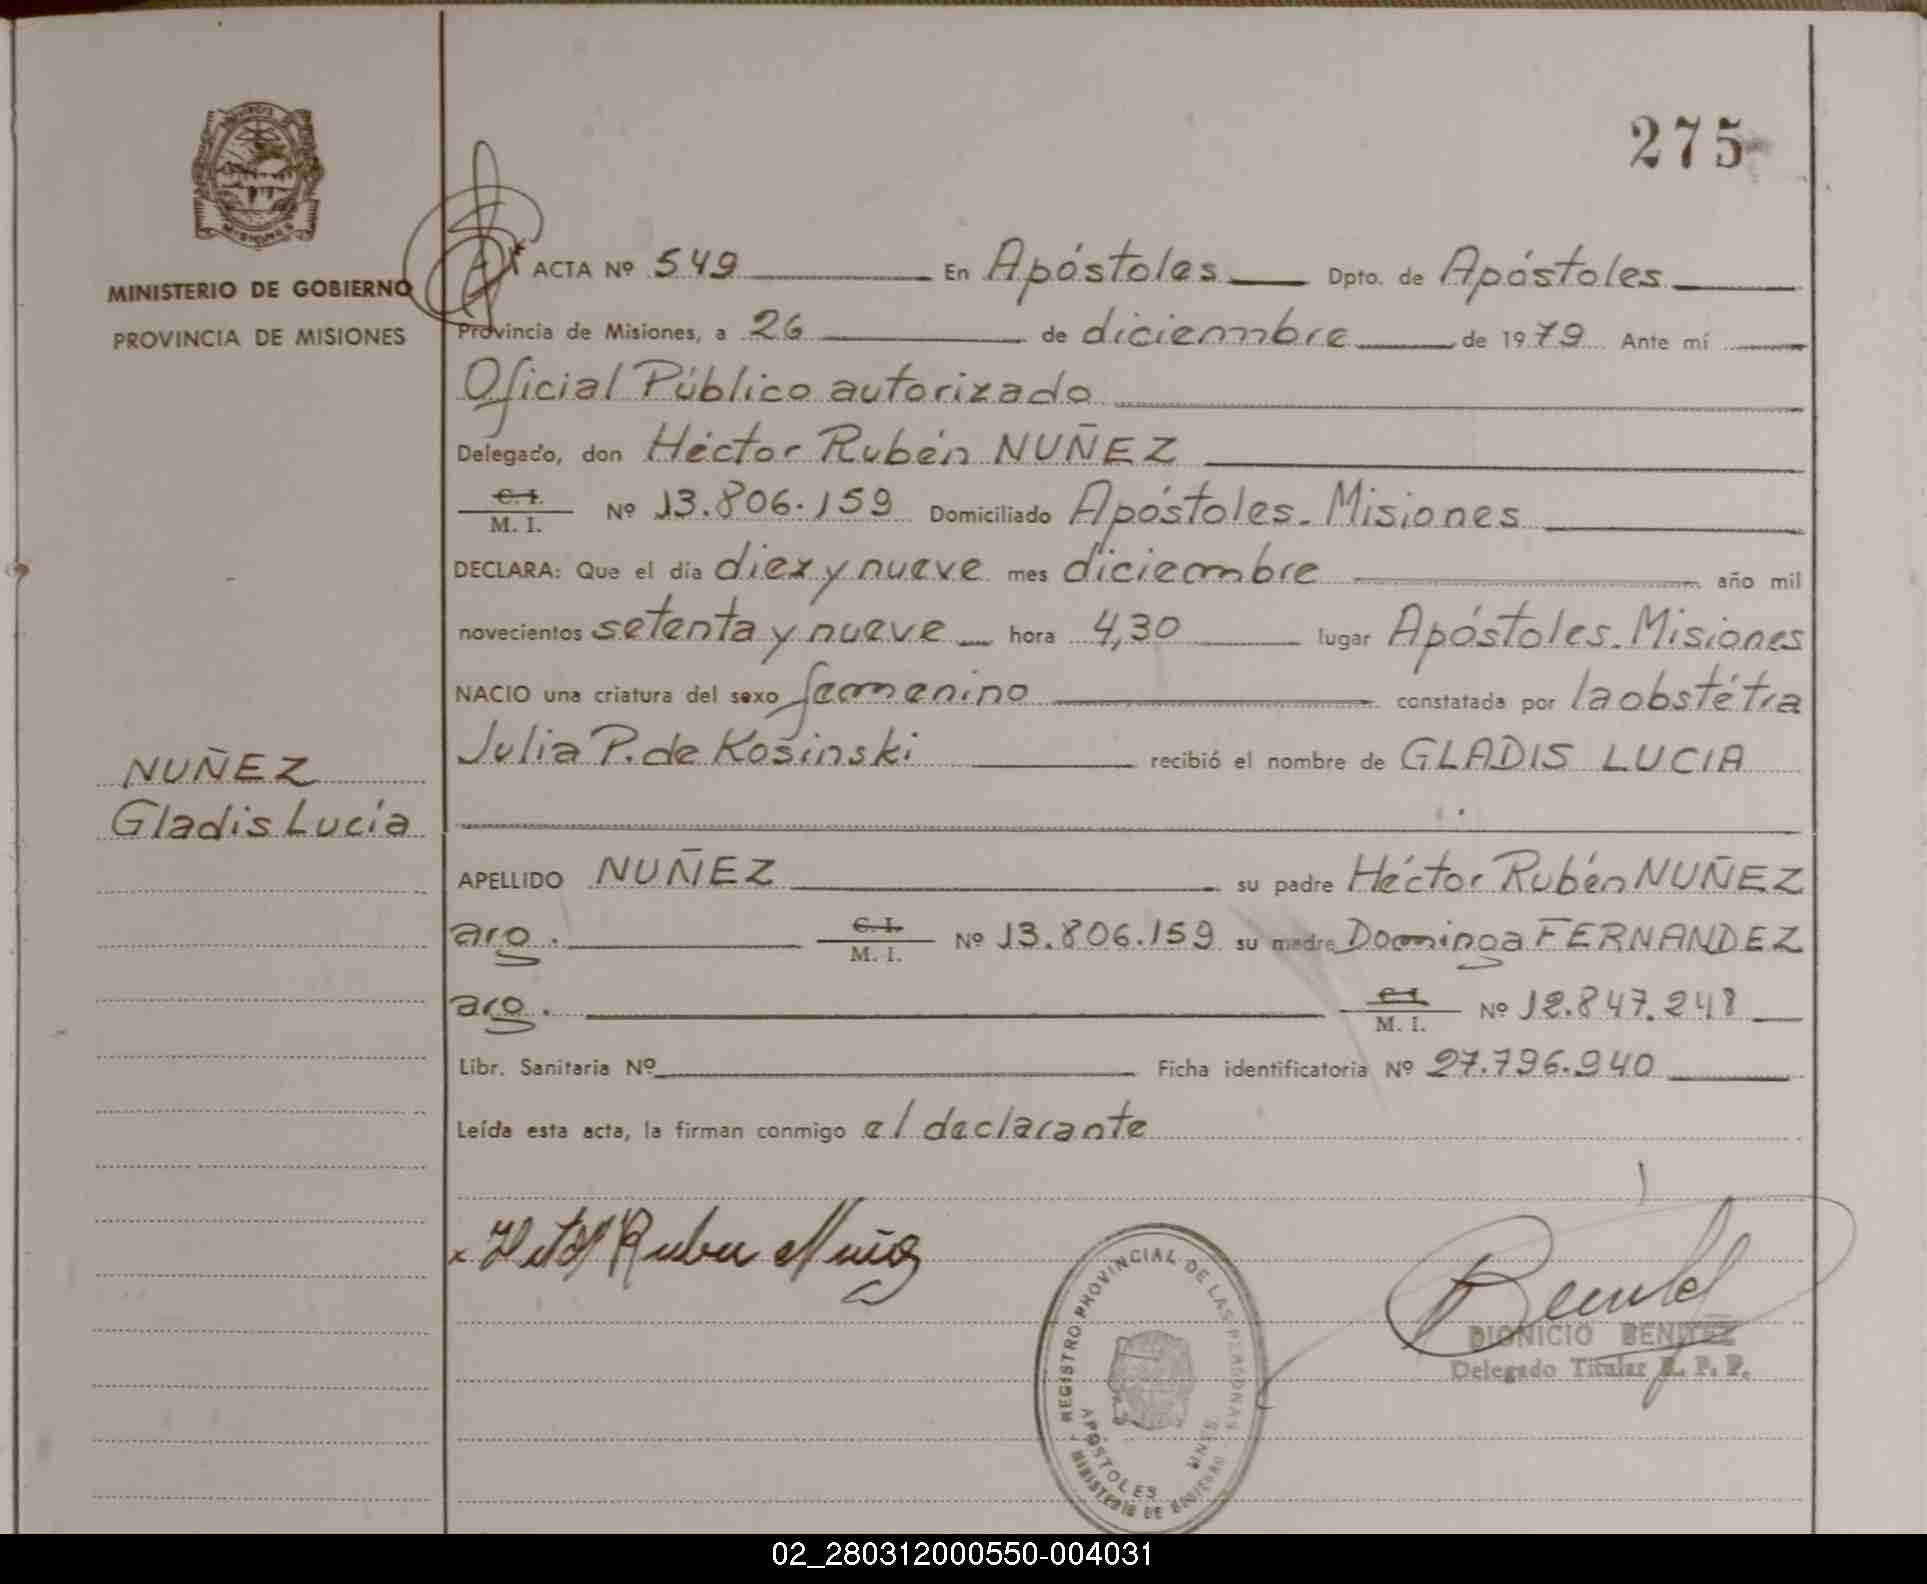 275
MINISTERIO DE GOBIERNO
PROVINCIA DE MISIONES
NUÑEZ
Gladis Lucía
ACTA Nº 549 En Apóstoles Dpto. de Apóstoles
Provincia de Misiones, a 26 de diciembre de 1979 Ante mí
Oficial Público autorizado
Delegado, don Héctor Rubén NUÑEZ
C. I.
M. I. Nº 13.806.159 Domiciliado Apóstoles. Misiones
DECLARA: Que el día diez y nueve mes diciembre año mil
novecientos setenta y nueve hora 4,30 lugar Apóstoles. Misiones
NACIO una criatura del sexo femenino constatada por la obstétra
Julia P. de Kosinski recibió el nombre de GLADIS LUCIA
APELLIDO NUÑEZ su padre Héctor Rubén NUÑEZ
arg. C. I.
M. I. Nº 13.806.159 su madre Dominga FERNANDEZ
arg. C. I.
M. I. Nº 12.847.248
Libr. Sanitaria Nº Ficha identificatoria Nº 27.796.940
Leída esta acta, la firman conmigo el declarante
REGISTRO PROVINCIAL DE LAS PERSONAS
APOSTOLES MNES.
MINISTERIO DE GOBIERNO
DIONICIO BENITEZ
Delegado Titular R. P. P.
02_280312000550-004031